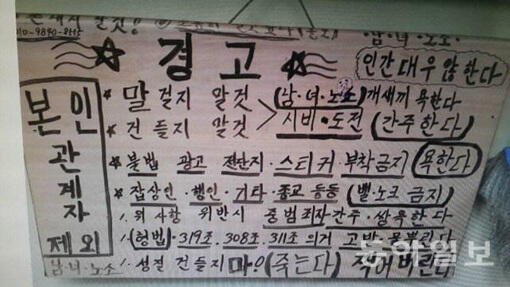 남·녀·노·소
☆ 경고 ☆
인간대우않한다
본인
관계자
제외
남·녀·노·소
★ 말 걸지 말것
★ 건들지 말것
(남·녀·노소) 개새끼 욕한다
시비·도전 (간주한다)
★ 불법 광고 전단지·스티커·부착금지 (욕한다)
★ 잡상인·행인·기타·종교 등등 (벨·노크 금지)
위 사항 위반시 중범죄자간주·쌍욕한다
(형법)·319조·308조·311조 의거 고발
성질 건들지 마! (죽는다)
동아일보